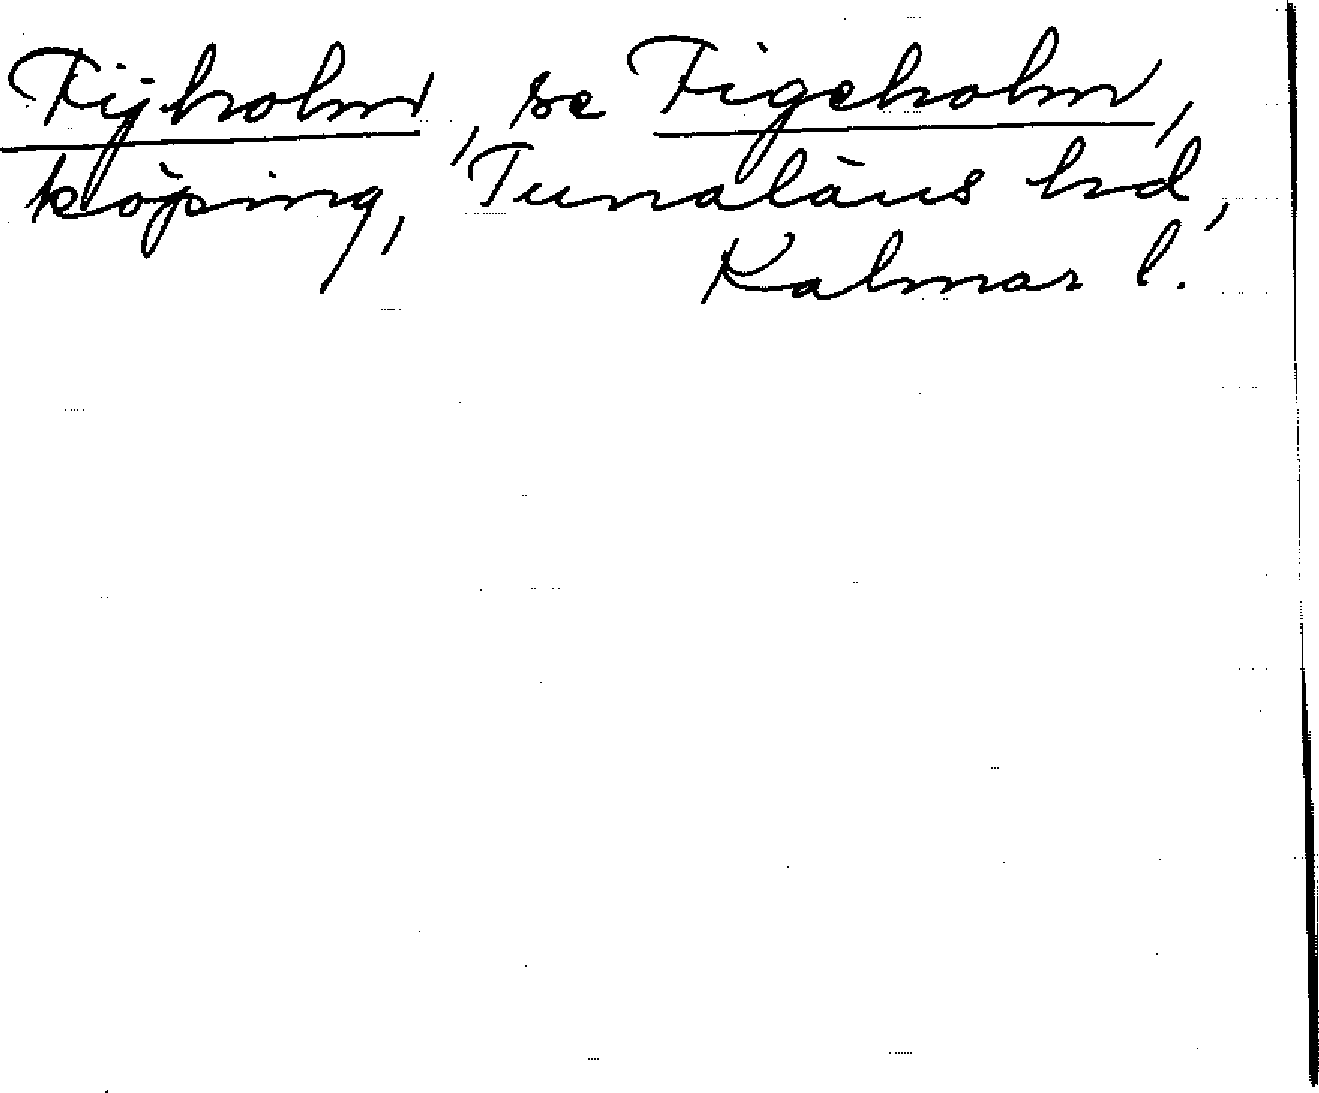 Fijholm, se Figeholm,
köping, Tunaläns hd,
Kalmar l.